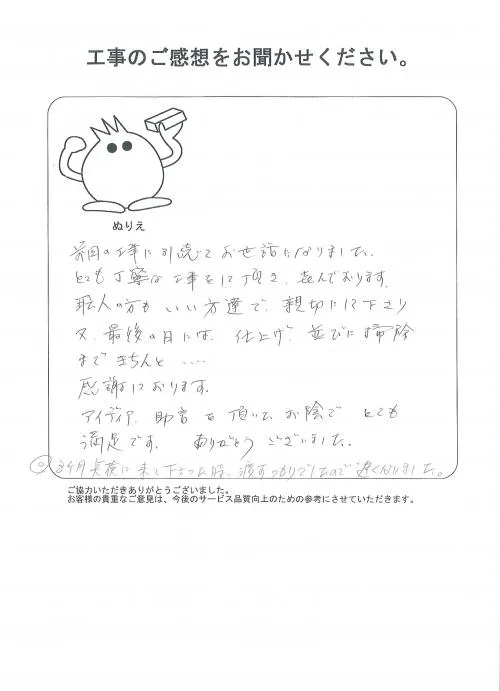 工事のご感想をお聞かせください。
ぬりえ
前回の工事に引続いてお世話になりました。
とても丁寧な工事をして頂き、喜んでおります。
職人の方も いい方達で、親切にして下さり
又、最後の日には、仕上げ、並びに掃除
まで きちんと ‥‥
感謝しております。
アイディア、助言を頂いて、お陰で とても
満足です。 ありがとう ございました。
○ 3ヶ月点検に来て下さった時、渡すつもりでしたので遅くなりました。
ご協力いただきありがとうございました。
お客様の貴重なご意見は、今後のサービス品質向上のための参考にさせていただきます。